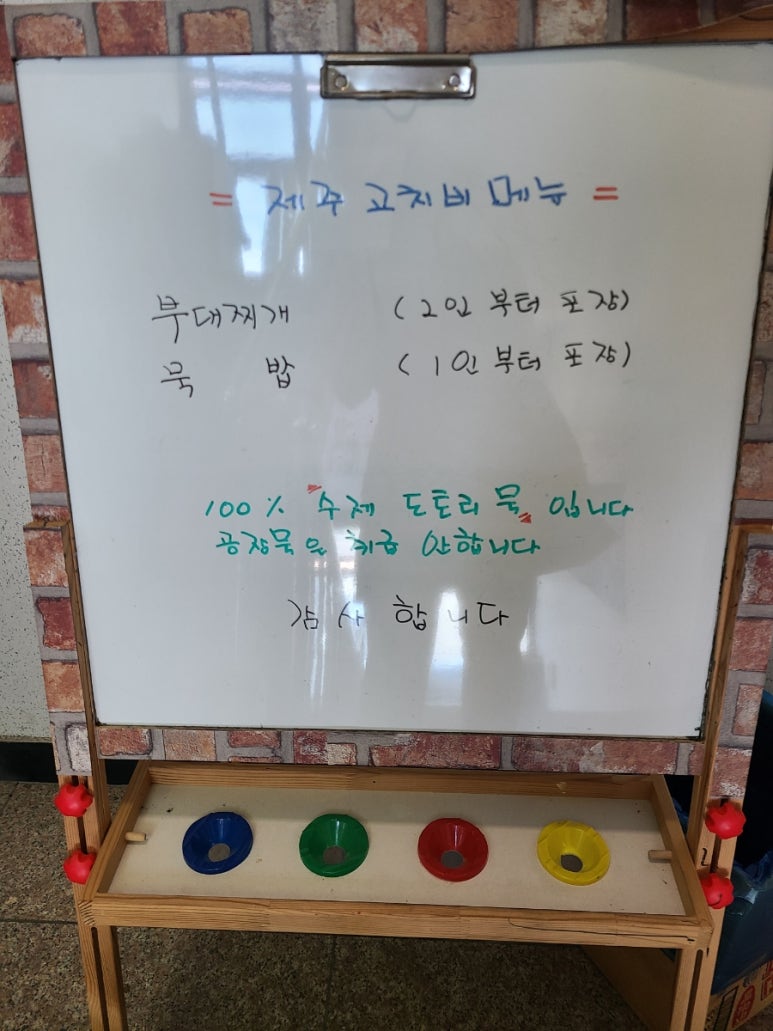 = 제주 고치비 메뉴 =
부대찌개 (2인 부터 포장)
묵 밥 (1인 부터 포장)
100% "수제 도토리 묵" 입니다
공장묵은 취급 안합니다
감사 합니다